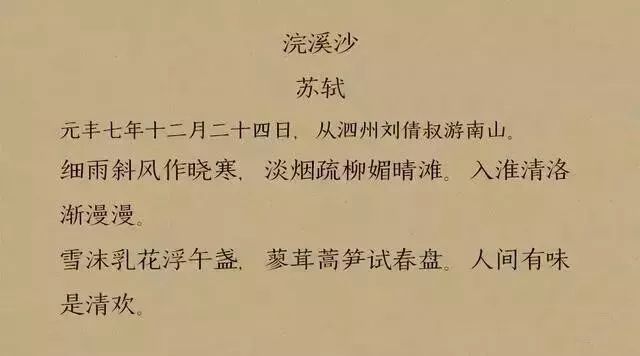 浣溪沙
苏轼
元丰七年十二月二十四日，从泗州刘倩叔游南山。
细雨斜风作晓寒，淡烟疏柳媚晴滩。入淮清洛
渐漫漫。
雪沫乳花浮午盏，蓼茸蒿笋试春盘。人间有味
是清欢。